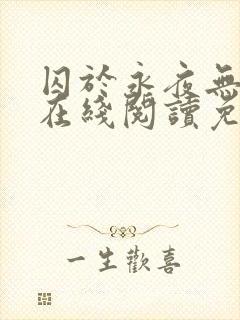 囚於永夜無
在綫閱讀免
一生歡喜